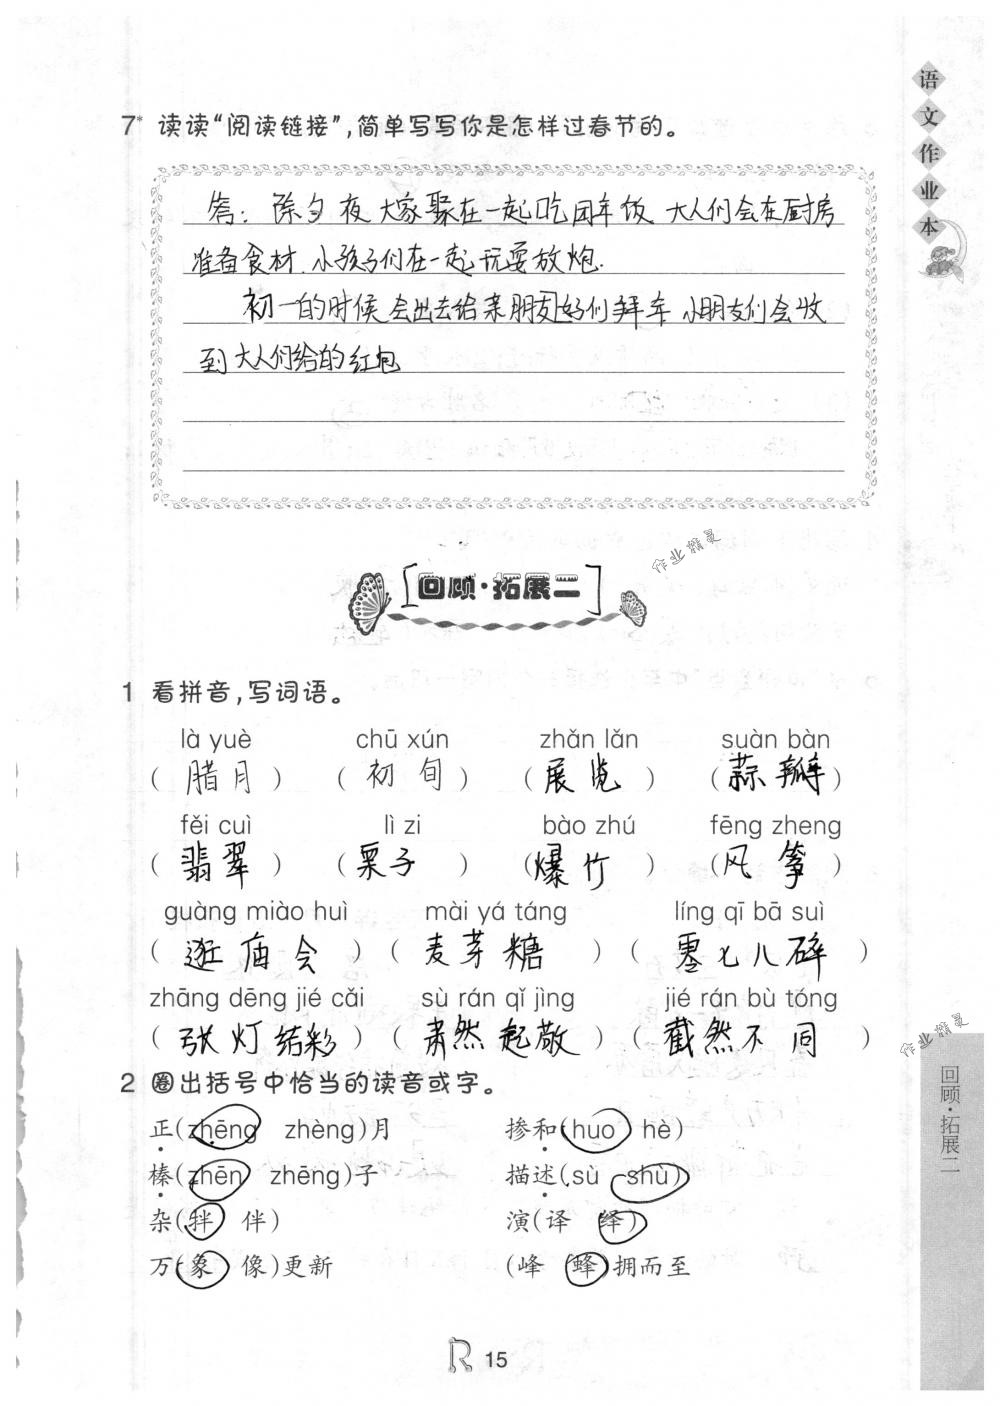 语文作业本
7* 读读“阅读链接”,简单写写你是怎样过春节的。
答: 除夕夜大家聚在一起吃团年饭 大人们会在厨房
准备食材.小孩子们在一起玩耍放炮.
初一的时候会出去给亲朋友好们拜年 小朋友们会收
到大人们给的红包
作业精灵
回顾·拓展二
1 看拼音,写词语。
là yuè chū xún zhǎn lǎn suàn bàn
( 腊月 ) ( 初旬 ) ( 展览 ) ( 蒜瓣 )
fěi cuì lì zi bào zhú fēng zheng
( 翡翠 ) ( 栗子 ) ( 爆竹 ) ( 风筝 )
guàng miào huì mài yá táng líng qī bā suì
( 逛庙会 ) ( 麦芽糖 ) ( 零七八碎 )
zhāng dēng jié cǎi sù rán qǐ jìng jié rán bù tóng
( 张灯结彩 ) ( 肃然起敬 ) ( 截然不同 )
作业精灵
2 圈出括号中恰当的读音或字。
正(zhēng zhèng)月 掺和(huo hè)
榛(zhēn zhēng)子 描述(sù shù)
杂(拌 伴) 演(译 绎)
万(象 像)更新 (峰 蜂)拥而至
回顾·拓展二
R 15